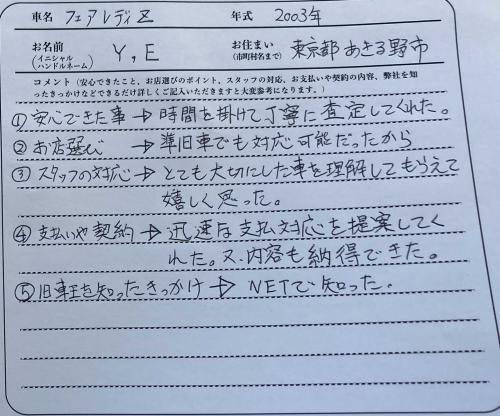 車名 フェアレディZ 年式 2003年
お名前 (イニシャル ハンドルネーム) Y,E お住まい (市町村名まで) 東京都あきる野市
コメント(安心できたこと、お店選びのポイント、スタッフの対応、お支払いや契約の内容、弊社を知
ったきっかけなどできるだけ詳しくご記入いただきますと大変参考になります。)
①安心できた事→時間を掛けて丁寧に査定してくれた。
②お店選び →準旧車でも対応可能だったから
③スタッフの対応→とても大切にした車を理解してもらえて
嬉しく思った。
④支払いや契約→迅速な支払対応を提案してく
れた。又、内容も納得できた。
⑤旧車王を知ったきっかけ→NETで知った.